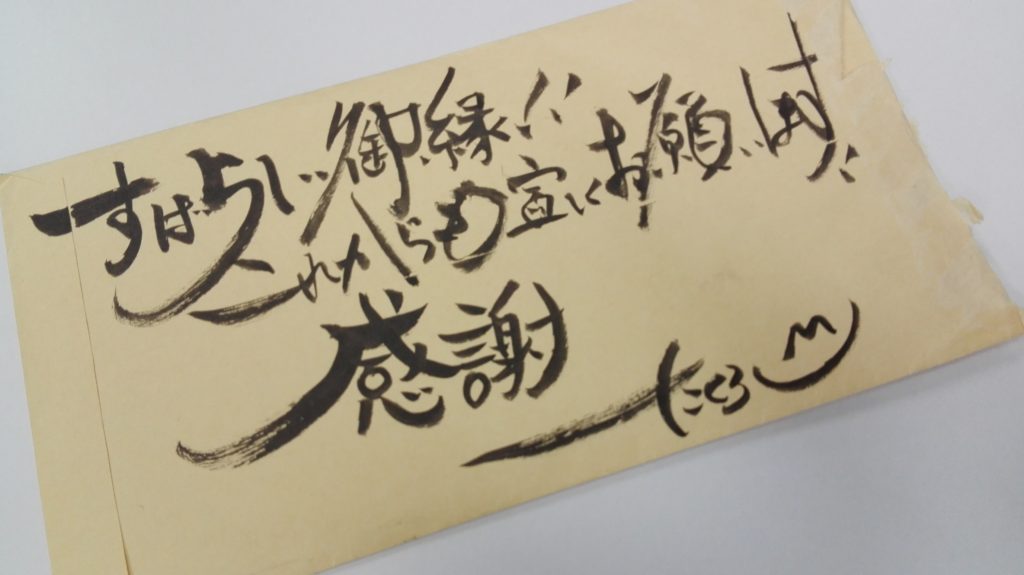 すばらしい御縁!!
これからも宜しくお願いします!!
感謝。